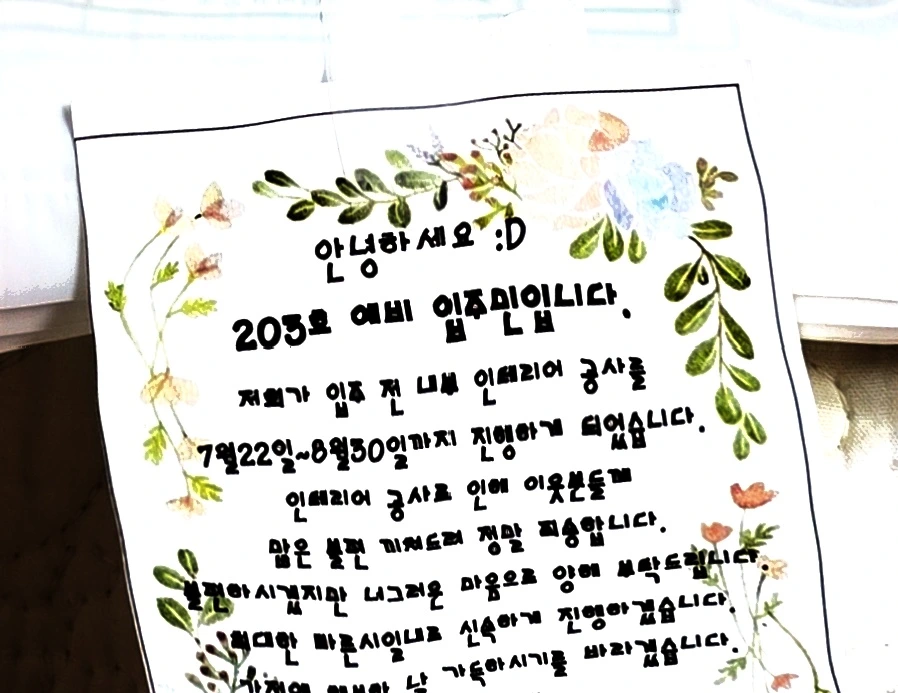 안녕하세요 :D
203호 예비 입주민입니다.
저희가 입주 전 내부 인테리어 공사를
7월22일~8월30일까지 진행하게 되었습니다.
인테리어 공사로 인해 이웃분들께
많은 불편 끼쳐드려 정말 죄송합니다.
불편하시겠지만 너그러운 마음으로 양해 부탁드립니다.
최대한 빠른시일내로 신속하게 진행하겠습니다.
가정에 행복한 날 가득하시기를 바라겠습니다.